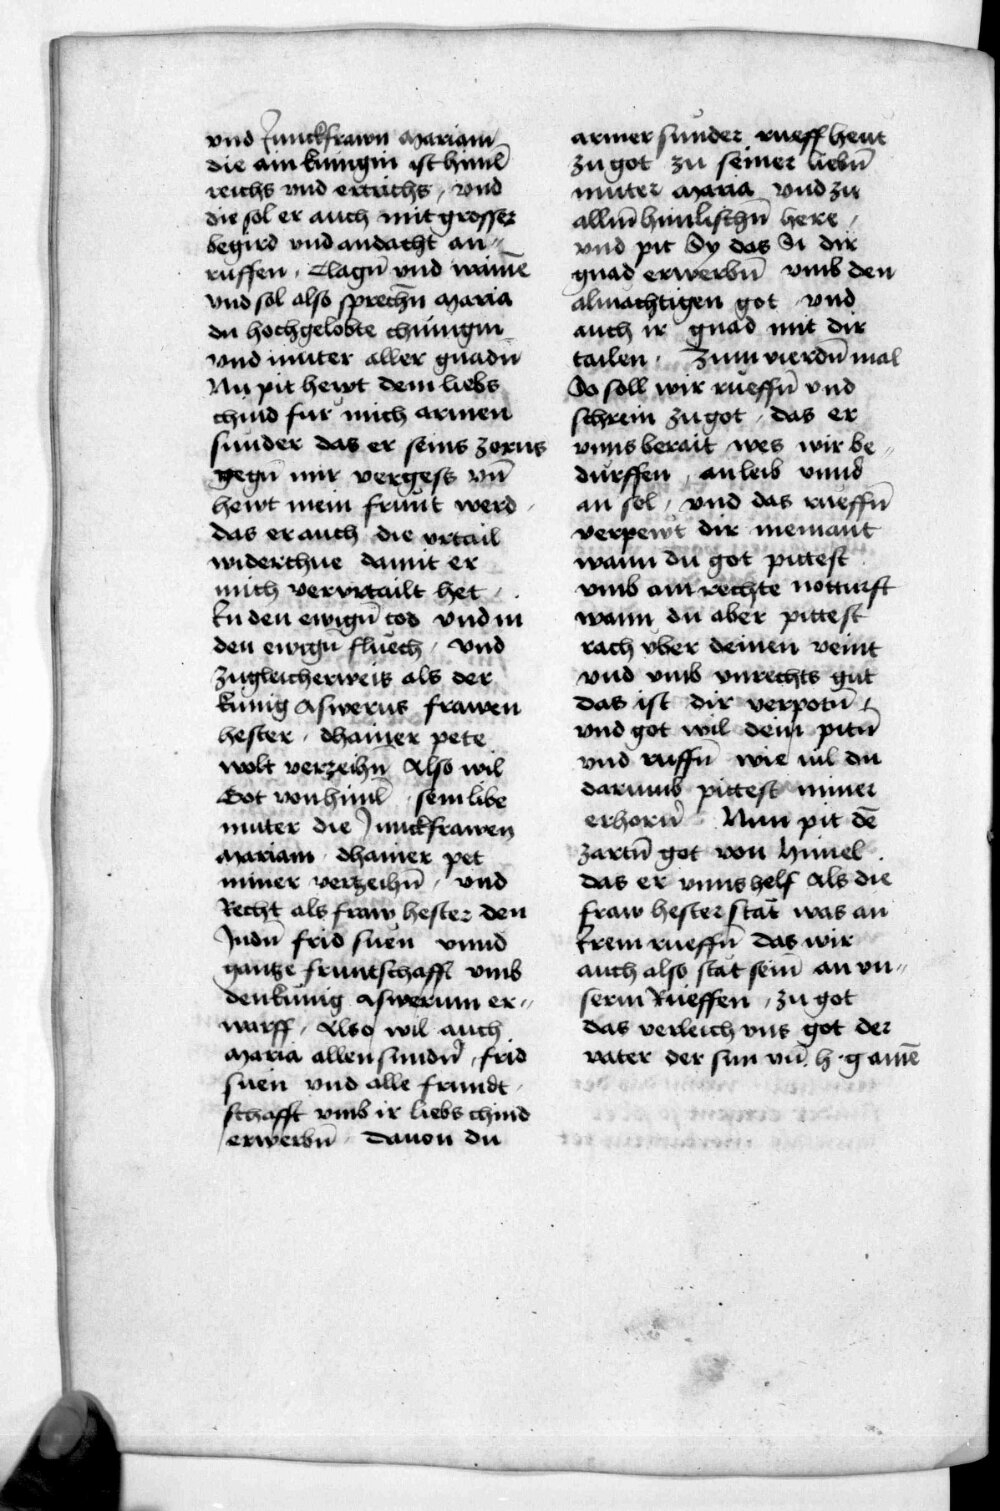 vnd Junckfrawn Mariam
die ain kunigin ist himl̄
reichs vnd ertrichs, vnd
die sol er auch mit grosser
begird vnd andacht an„
ruffen, Clagn̄ vnd wainē
vnd sol also sprechn̄ Maria
du hochgelobte chunigin
vnd muter aller gnadn̄
Nu pit hewt dein liebs
chind fur mich armen
sunder das er seins zorns
gegn̄ mir vergess vn̄
hewt mein frunt werd
das er auch die vrtail
widerchue damit er
mich vervrtailt het
Jn den ewign̄ tod vnd in
den ewign̄ fluech, vnd
zugleicherweis als der
kunig Aswerus frawen
hester, dhainer pete
wolt verzeihn̄ Also wil
Got von himl̄ sein libe
muter die Junckfrawen
Mariam dhainer pet
nimer vertzeihn̄, vnd
Recht als fraw hester den
Judn̄ frid suen vnnd
gantze fruntschafft vmb
den kunig Aswerum er„
warff, Also wil auch
Maria allen sundn̄, frid
suen vnd alle frundt
schafft vmb ir liebs chind
erwerbn̄ Dauon du
armer sunder rueff heut
zu got zu seiner liebn̄
muter Maria vnd zu
alln̄ himlischn̄ here,
vnd pit Sy das Si dir
gnad erwerbn̄ vmb den
almachtigen got vnd
auch ir gnad mit dir
tailen, Zum vierdn̄ mal
So soll wir rueffn̄ vnd
schrein zu got, das er
vnns berait wes wir be„
durffen, an leib vnnd
an sel, vnd das rueffn̄
verpewt dir niemant
wann du got pittest
vmb ain rechte notturft
wann du aber pittest
rach vber deinen veint
vnd vmb vnrechts gut
das ist dir verpotn̄,
vnd got wil dein pitn̄
vnd ruffn̄ wie uil du
darumb pittest nimer
erhorn̄ Nun pit dē
zartn̄ got von himel
das er vnns helf als die
fraw hester stat was an
Jrem rueffn̄ das wir
auch also stat sein̄ an vn„
serm Rueffen, zu got
das verleich vns got der
vater der sun vn̄ h. g amē